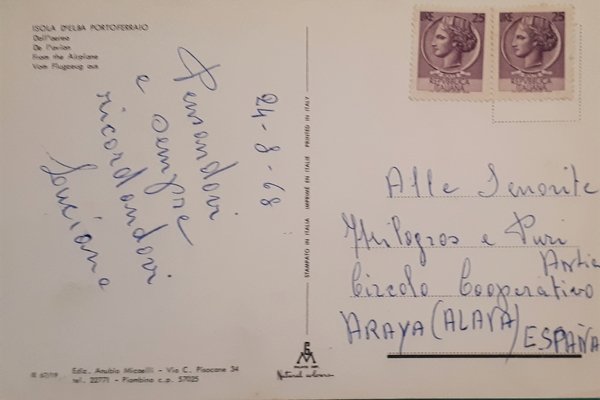 ISOLA D'ELBA PORTOFERRAIO
Dall'aereo
De l'avion
From the Airplane
Vom Flugzeug aus
24-8-68
Pensandovi
e sempre
ricordandovi
Luciana
LIRE 25
REPUBBLICA
ITALIANA
LIRE 25
REPUBBLICA
ITALIANA
STAMPATO IN ITALIA IMPRIMÉ EN ITALIE PRINTED IN ITALY
Alle Senorite
Milogros e Puri
Circolo Cooperativo
ARAYA (ALAVA) ESPAÑA
IE 67/19
Ediz. Anubio Micaelli - Via C. Pisacane 34
tel. 22771 - Piombino c.p. 57025
Natural colours